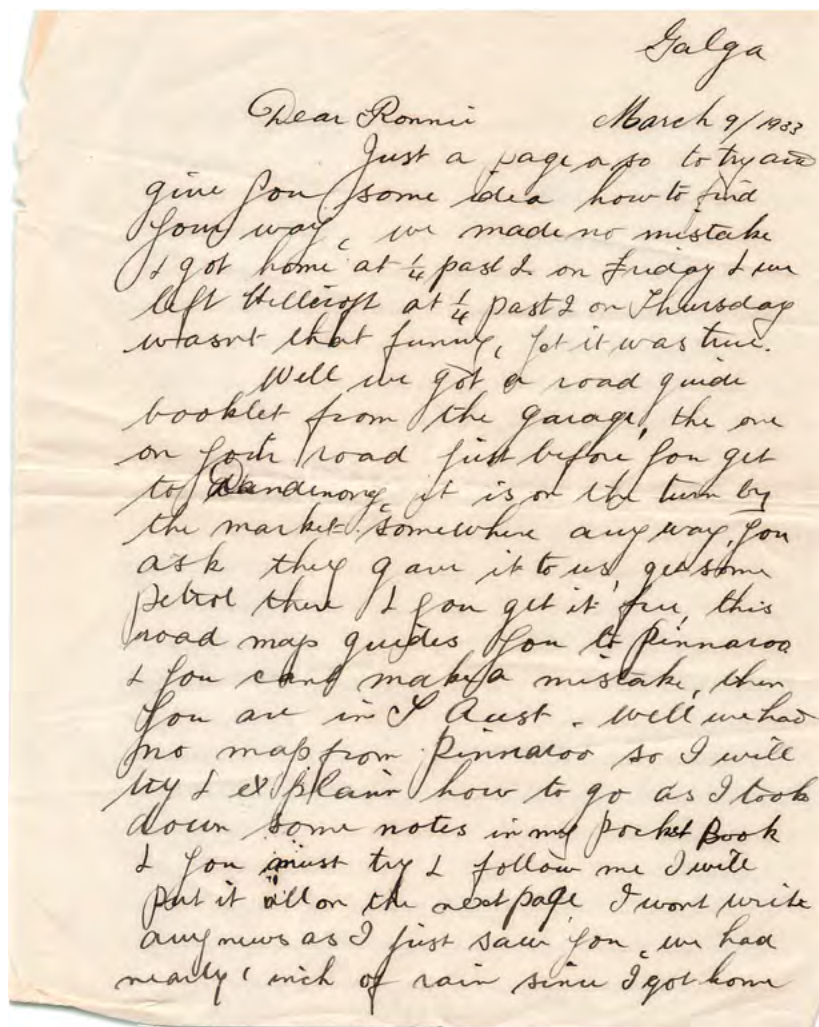 Galga
Dear Ronnie March 9/1933
Just a page or so to try and
give you some idea how to find
your way, we made no mistake
& got home at ¼ past 2 on Friday & we
left Hillcroft at ¼ past 2 on Thursday
wasnt that funny, yet it was true.
Well we got a road guide
booklet from the garage, the one
on your road just before you get
to Dandenong, it is on the turn by
the market somewhere any way, you
ask they gave it to us, get some
petrol there & you get it free, this
road map guides you to Pinnaroo
& you cant make a mistake, then
you are in S Aust. Well we had
no map from Pinnaroo so I will
try & explain how to go as I took
down some notes in my pocket Book
& you must try & follow me I will
put it all on the next page I wont write
any news as I just saw you, we had
nearly 1 inch of rain since I got home